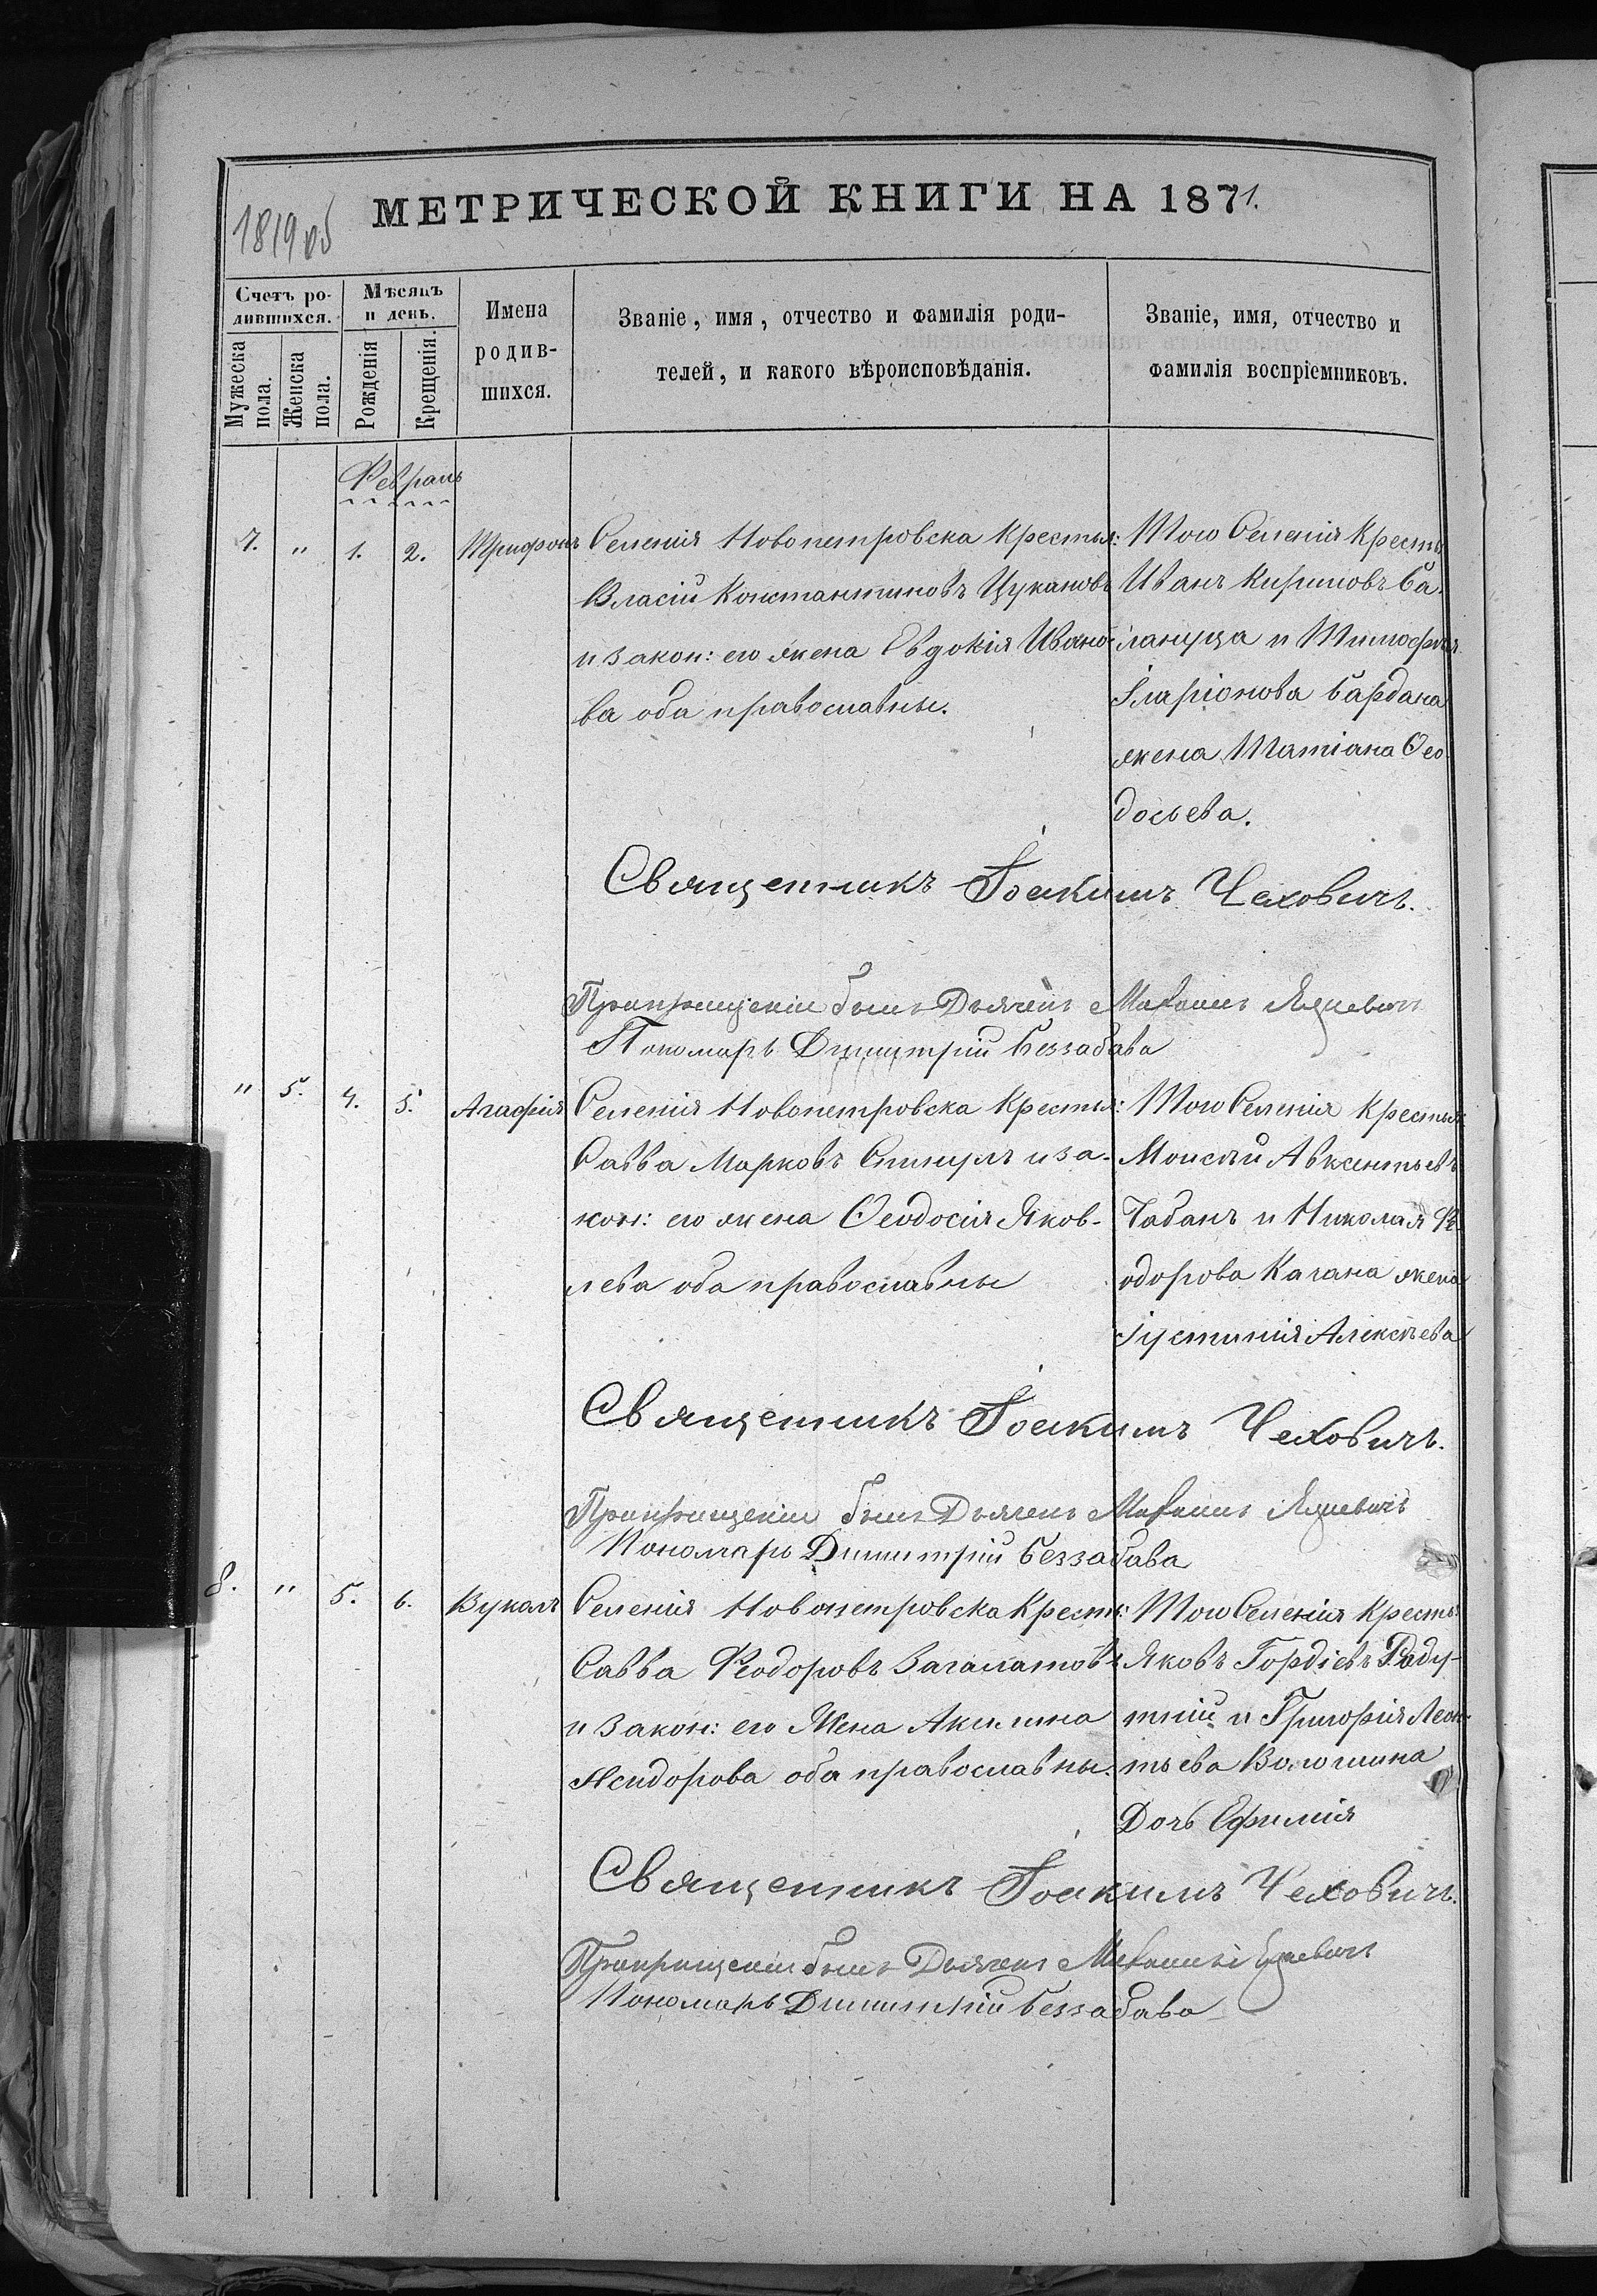 1819 об
МЕТРИЧЕСКОЙ КНИГИ НА 1871.
Счетъ ро-
дившихся.
Мужеска пола.
Женска пола.
Мѣсяцъ
и день.
Рожденія
Крещенія.
Имена
родив-
шихся.
Званіе, имя, отчество и фамилія роди-
телей, и какого вѣроисповѣданія.
Званіе, имя, отчество и
фамилія воспріемниковъ.
Февраль
7. " 1. 2. Трифонъ
Селенія Новопетровска Крестья:
Власій Константиновъ Цукановъ
и закон: его жена Евдокія Ивано-
ва оба православные.
Того Селенія Кресть
Иванъ Кириловъ Ба-
лануца и Тимофея
Іларіонова Бардана
жена Татіана Ѳео-
досьева.
Священникъ Іоакимъ Чеховичъ.
При крещеніи былъ Дьячекъ Михаилъ Яцкевичъ
Пономарь Димитрій Беззабава
" 5. 4. 5. Агафія
Селенія Новопетровска Крестья:
Савва Марковъ и за-
кон: его жена Ѳеодосія Яков-
лева оба православны
Того Селенія Крестья:
Моисей Авксентьевъ
Чабанъ и Николая Ѳе
одорова Качана жена
Іустинія Алексѣева
Священникъ Іоакимъ Чеховичъ.
При крещеніи былъ Дьячекъ Михаилъ Яцкевичъ
Пономарь Димитрій Беззабава
8. " 5. 6. Вуколъ
Селенія Новопетровска Кресть:
Савва Феодоровъ Загаматовъ
и закон: его Жена Акилина
Исидорова оба православны.
Того Селенія Кресть
Яковъ Гордіевъ Раду-
тній и Григорія Леон-
тьева Волошина
Дочь Ефимія
Священникъ Іоакимъ Чеховичъ.
При крещеніи былъ Дьячекъ Михаилъ Яцкевичъ
Пономарь Димитрій Беззабава